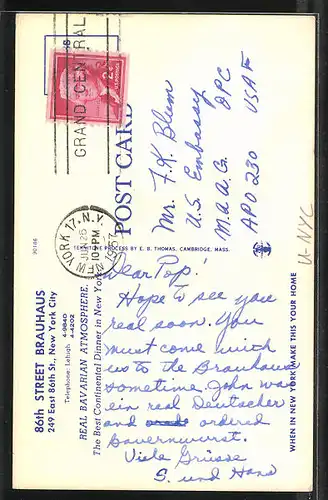 GRAND CENTRAL
2¢
NEW YORK 17. N.Y.
JUN 26
10 PM
1957
POST CARD
Mr. F. K. Blum
U.S. Embassy
M.A.A.G. APC
APO 230 USAF
U-NYC
TERRITONE TYPE BY E. B. THOMAS, CAMBRIDGE, MASS.
90166
86th STREET BRAUHAUS
249 East 86th St., New York City
Telephone: Lehigh 4-9840
4-4202
REAL BAVARIAN ATMOSPHERE.
The Best Continental Dinners in New York
Dear Pop!
Hope to see you
real soon. You
must come with
us to the Brauhaus
sometime. John war
ein real Deutscher
and ordered
Bauernwurst.
Viele Grüsse
S. und Hans
WHEN IN NEW YORK MAKE THIS YOUR HOME